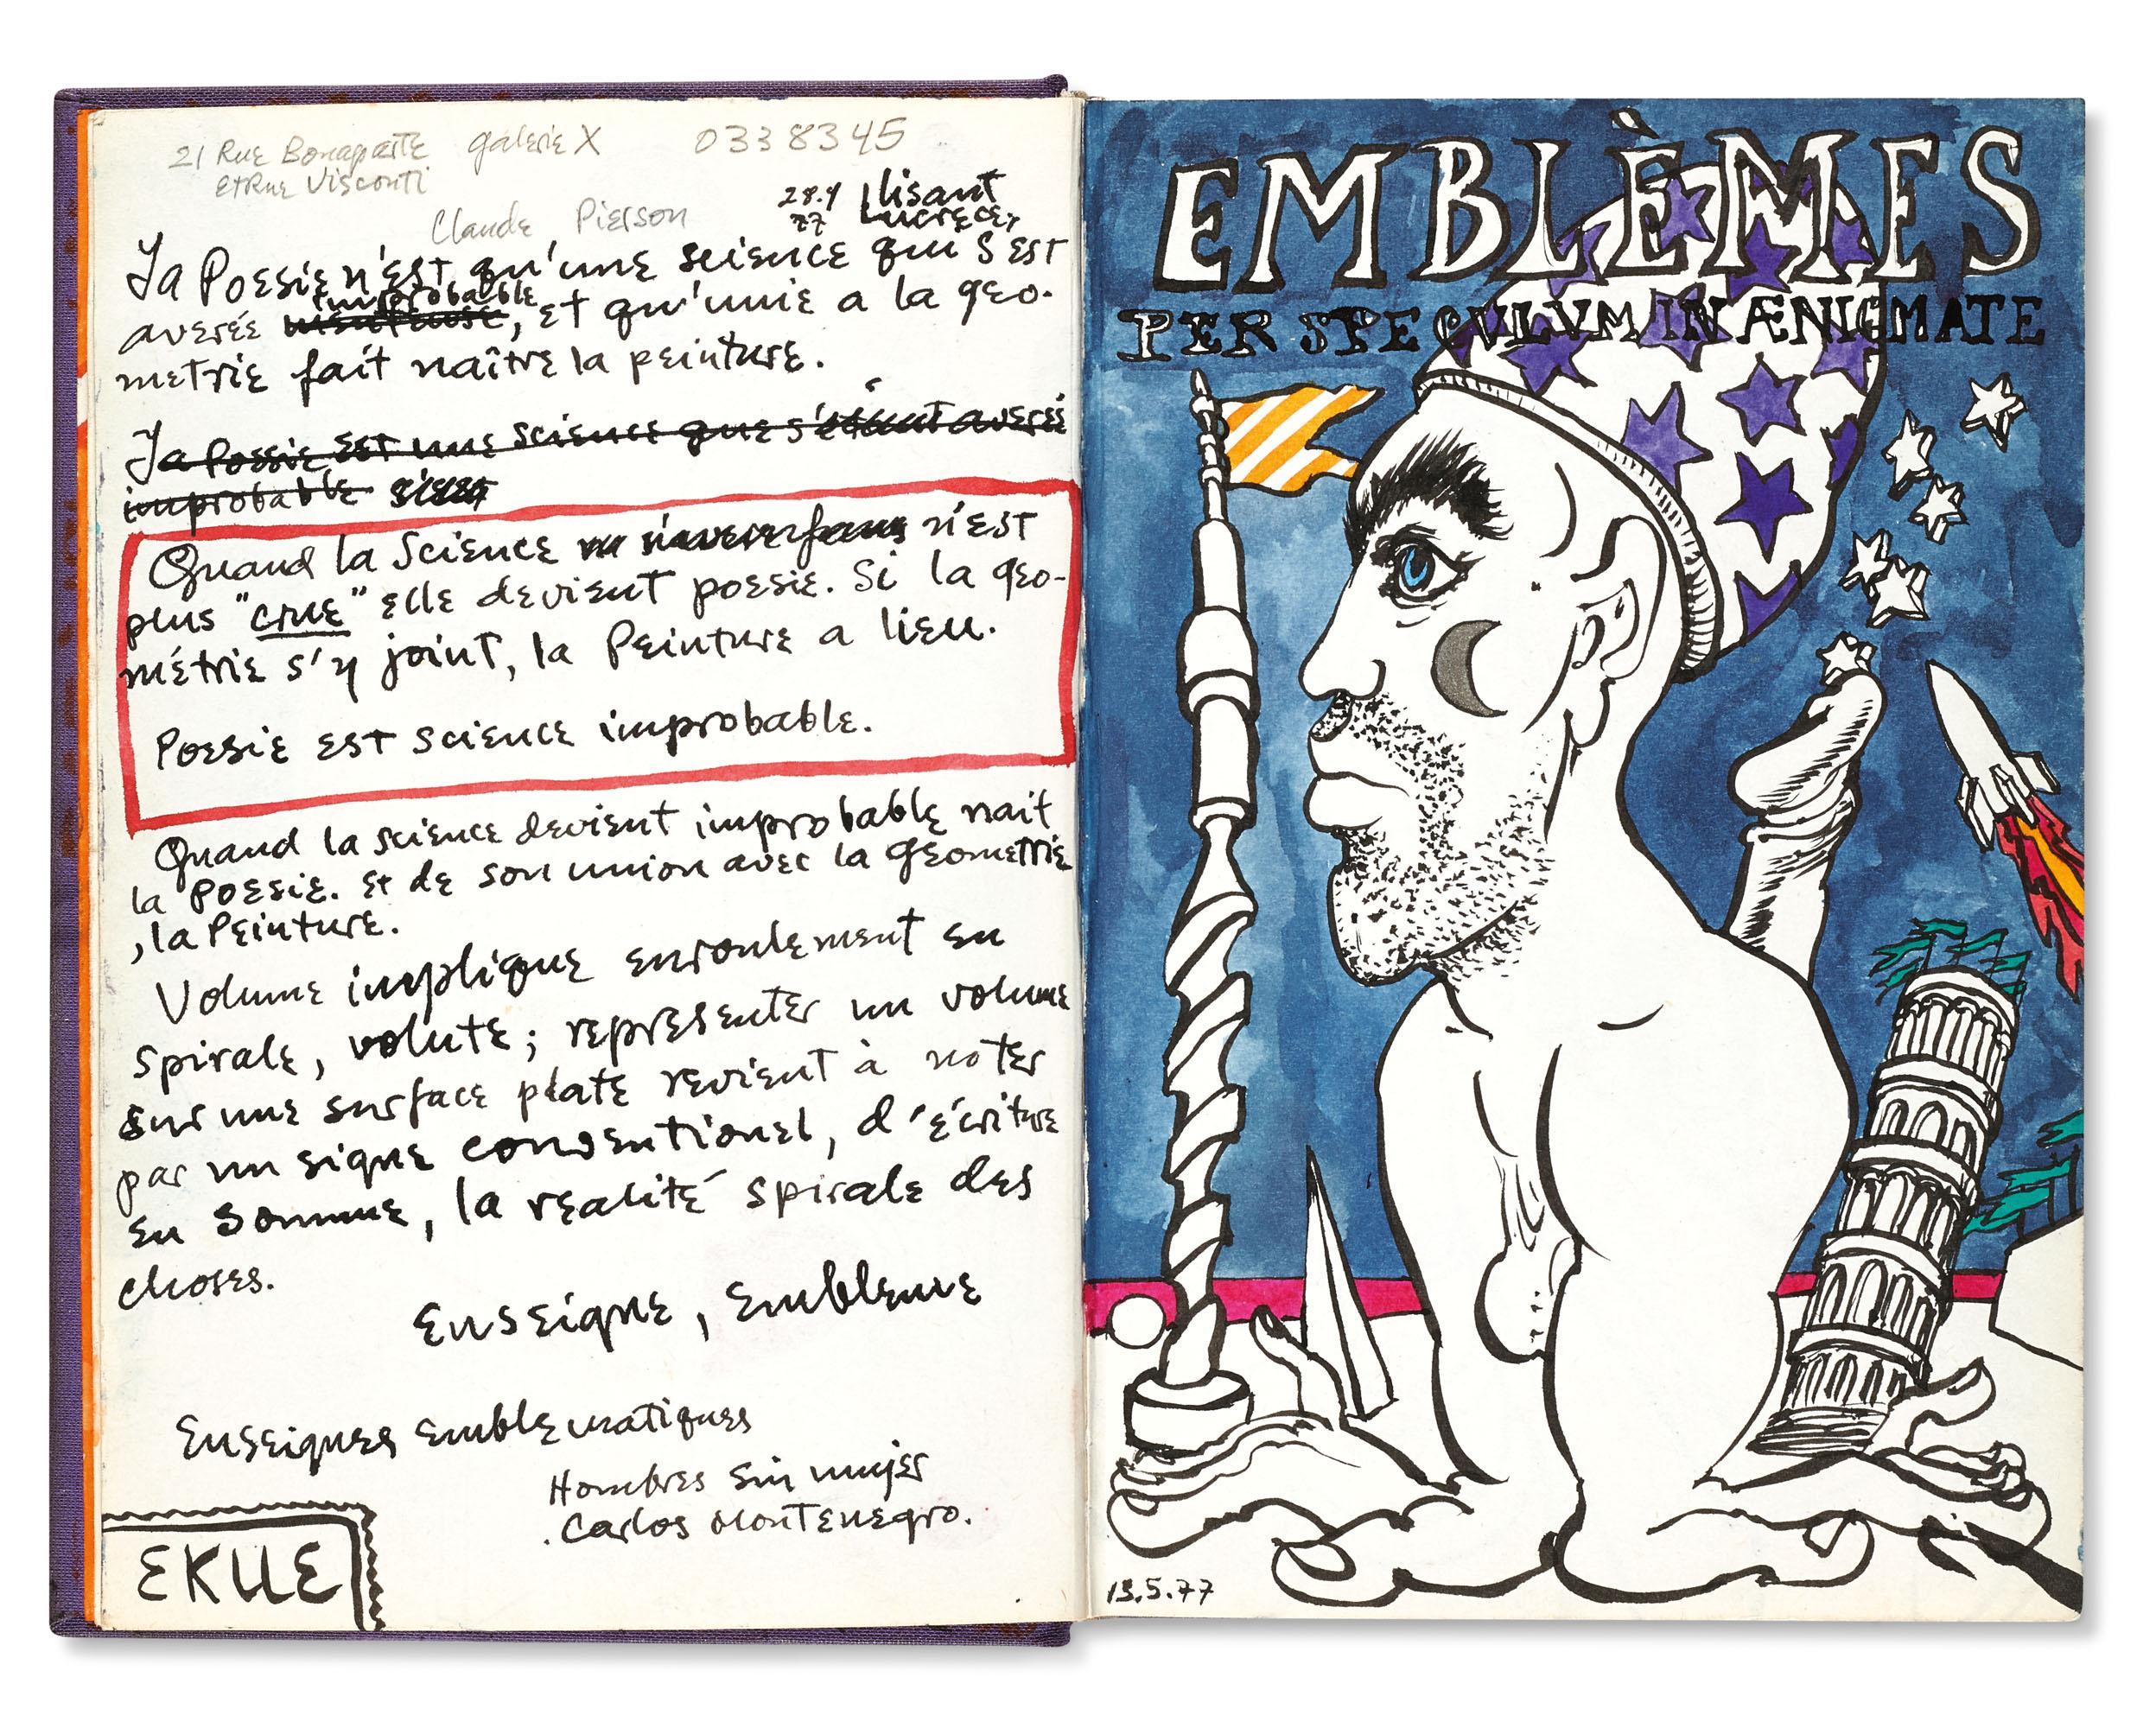 21 Rue Bonaparte Galerie X 033 8345
Et Rue Visconti
Claude Pierson
28.4 77 lisant
Lucrece,
La Poesie n'est qu'une science qui s'est
improbable
averée, et qu'unie a la geo-
metrie fait naître la peinture.
La Poesie est une science que s'étant averée
improbable
Quand la Science n'est
plus "crue" elle devient poesie. Si la geo-
métrie s'y joint, la Peinture a lieu.
Poesie est science improbable.
Quand la science devient improbable nait
la Poesie. Et de son union avec la Geometrie
, la Peinture.
Volume implique enroulement en
spirale, volute; representer un volume
sur une surface plate revient à noter
par un signe conventionel, d'écriture
en somme, la réalité spirale des
choses.
Enseigne, Embleme
Enseignes emblematiques
Hombres sin mujer
. Carlos Montenegro.
EKUE
EMBLÈMES
PER SPEQVLVM IN ÆNIGMATE
13.5.77